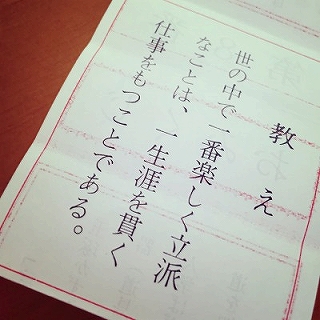 教え
世の中で一番楽しく立派
なことは、一生涯を貫く
仕事をもつことである。